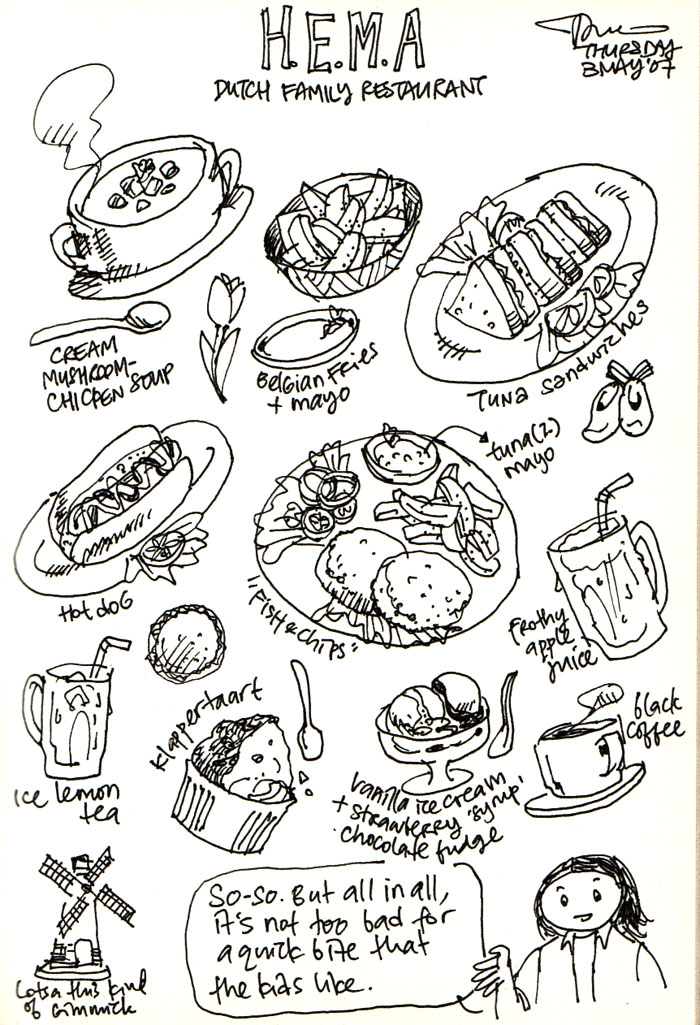 H.E.M.A
DUTCH FAMILY RESTAURANT
THURSDAY
3 MAY '07
CREAM
MUSHROOM-
CHICKEN SOUP
BELGIAN FRIES
+ mayo
TUNA sandwiches
tuna(?)
mayo
Hot doG
"FISH & CHIPS"
FROTHY
apple
juice
ice lemon
tea
Klappertaart
vanilla ice cream
+ strawberry 'syrup'
chocolate fudge
black
coffee
Lotsa this kind
of Gimmick
So-so. But all in all,
it's not too bad for
a quick bite that
the kids like.